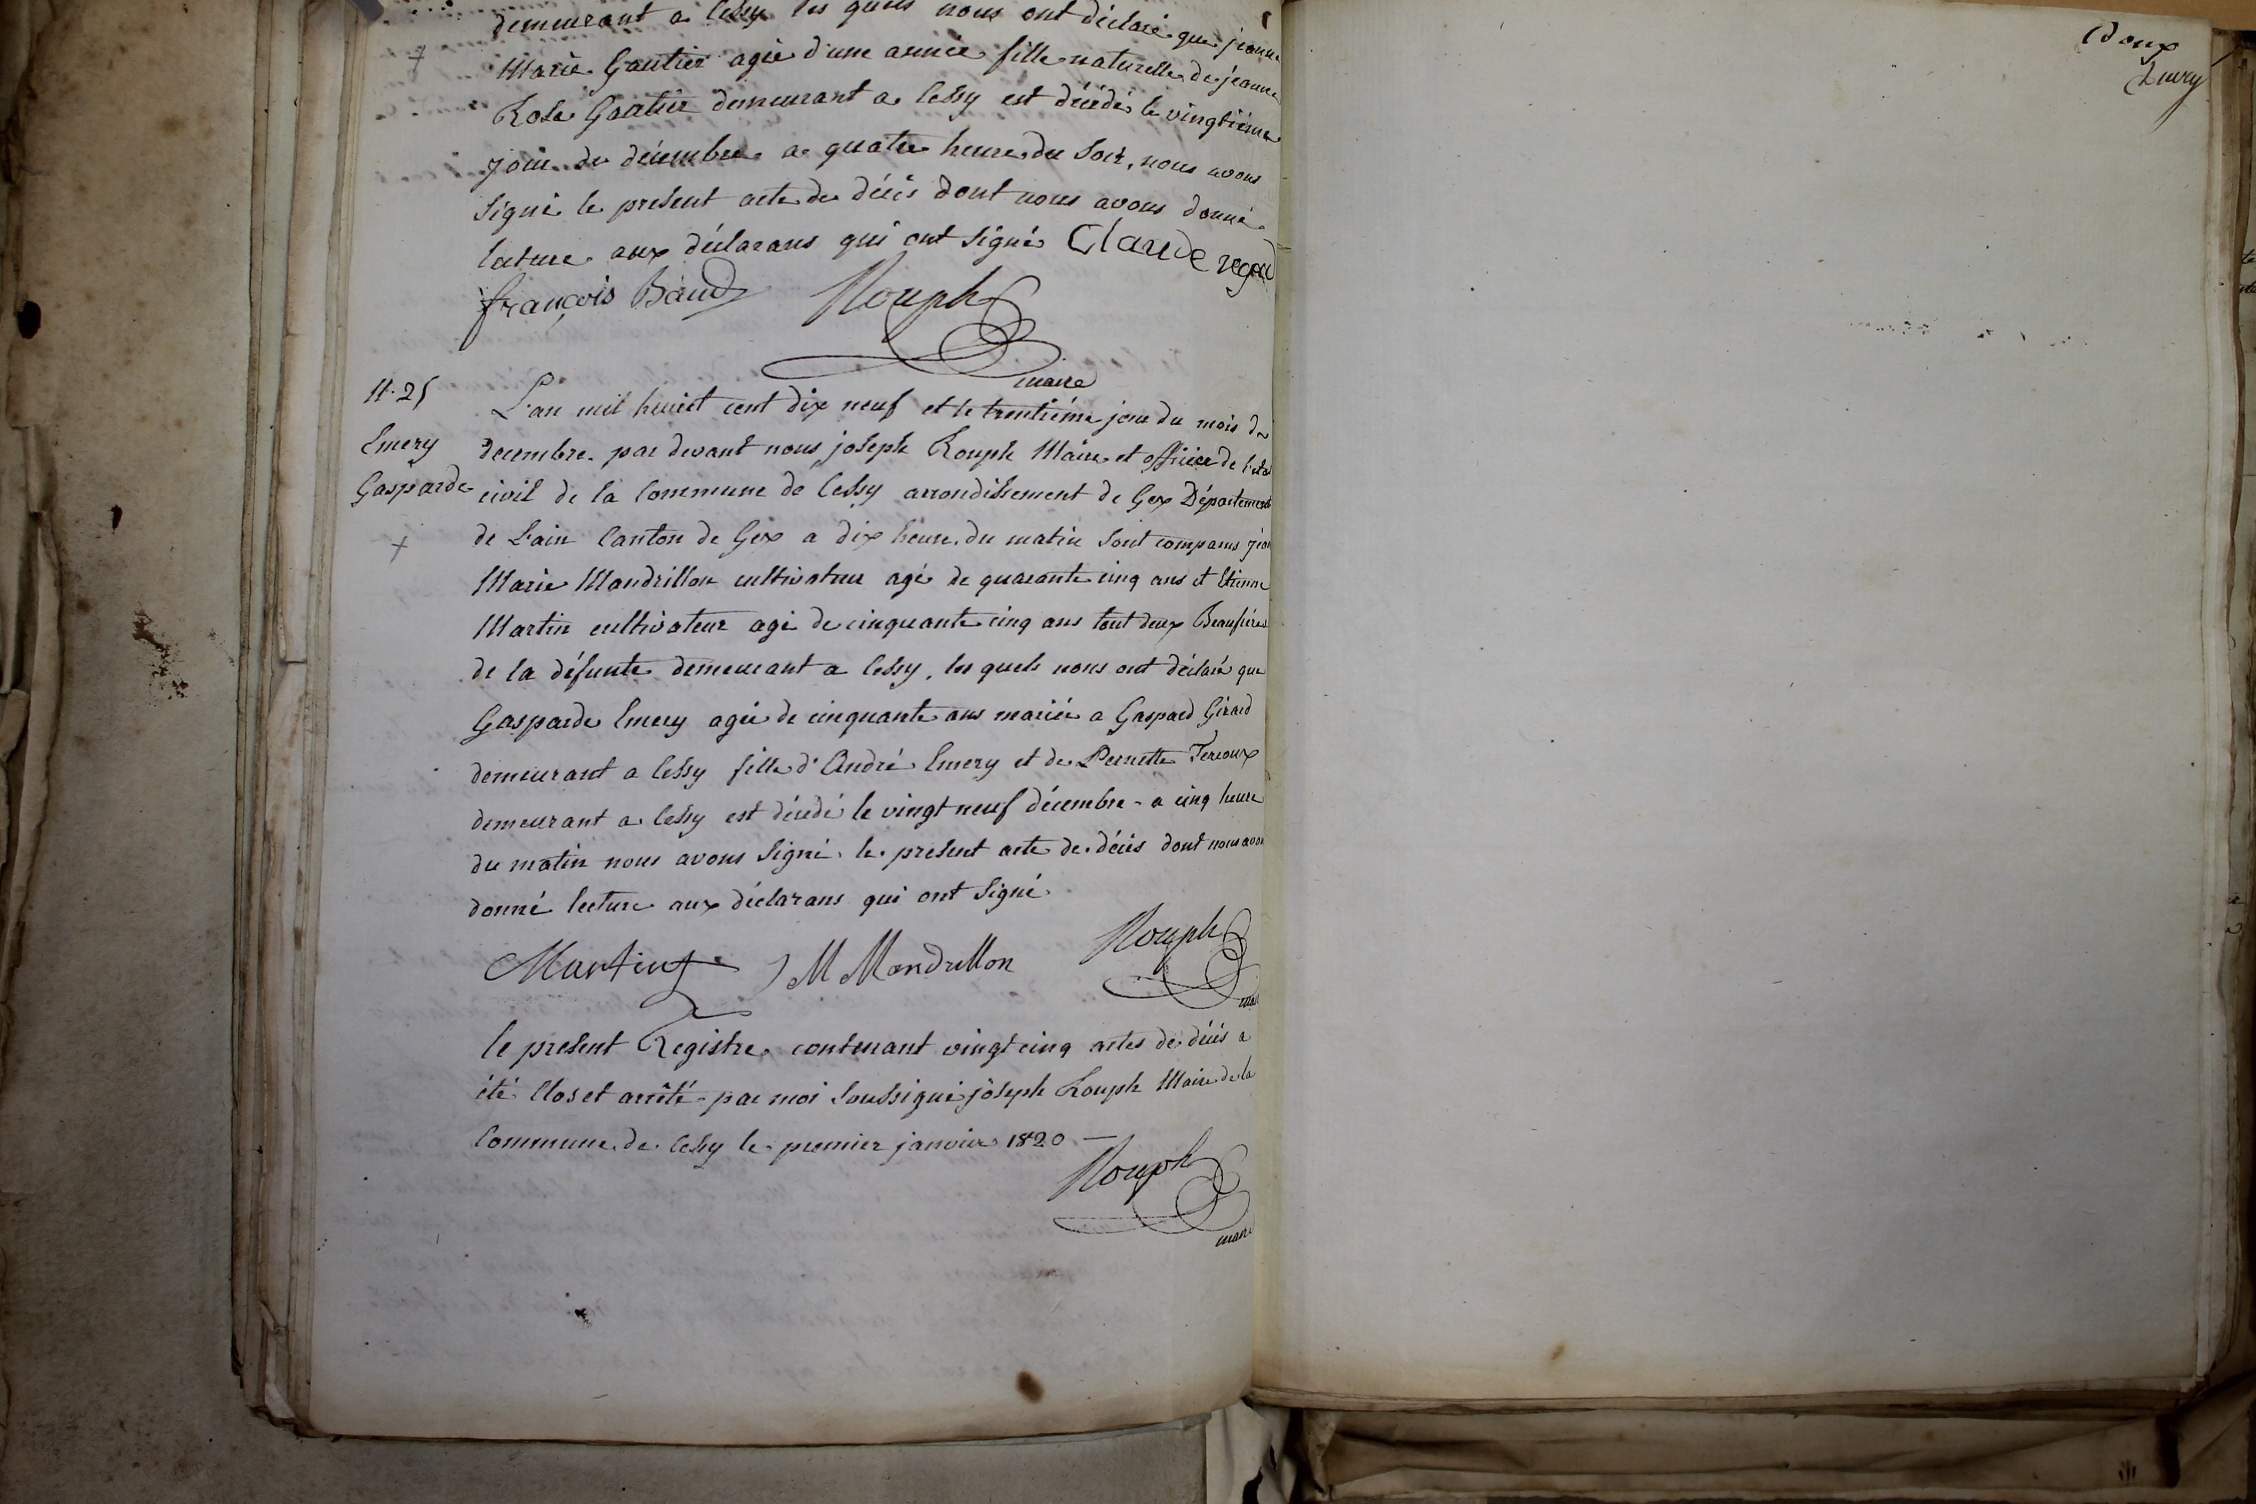 demeurant a Cessy les quels nous ont déclaré que jeanne
Marie Gautier agée d'une année fille naturelle de jeanne
Rose Gautier demeurant a Cessy est décédé le vingtième
jour de décembre a quatre heure du Soir, nous avons
Signé le present acte de décès dont nous avons donné
lature aux déclarans qui ont signé Claude regad
françois Baud Rouph
maire
N. 25
Emery
Gasparde
L'an mil huict cent dix neuf et le trentiéme jour du mois de
decembre par devant nous joseph Rouph Maire et officier de l'etat
civil de la Commune de Cessy arrondissement de Gex Département
de L'ain Canton de Gex a dix heure du matin Sont comparus jean
Marie Mandrillon cultivateur agé de quarante cinq ans et Etienne
Martin cultivateur agé de cinquante cinq ans tout deux Beaufréres
de la défunte demeurant a Cessy, les quels nous ont déclaré que
Gasparde Emery agée de cinquante ans mariée a Gaspard Girard
demeurant a Cessy fille d'André Emery et de Pernette
demeurant a Cessy est décédé le vingt neuf décembre a cinq heure
du matin nous avons Signé le present acte de décès dont nous avons
donné lecture aux déclarans qui ont Signé
Martin J M Mandrillon Rouph
mai
le present Registre contenant vingt cinq actes de décés a
été Clos et arrêté par moi Soussigné joseph Rouph Maire de la
Commune de Cessy le premier janvier 1820
Rouph
maire